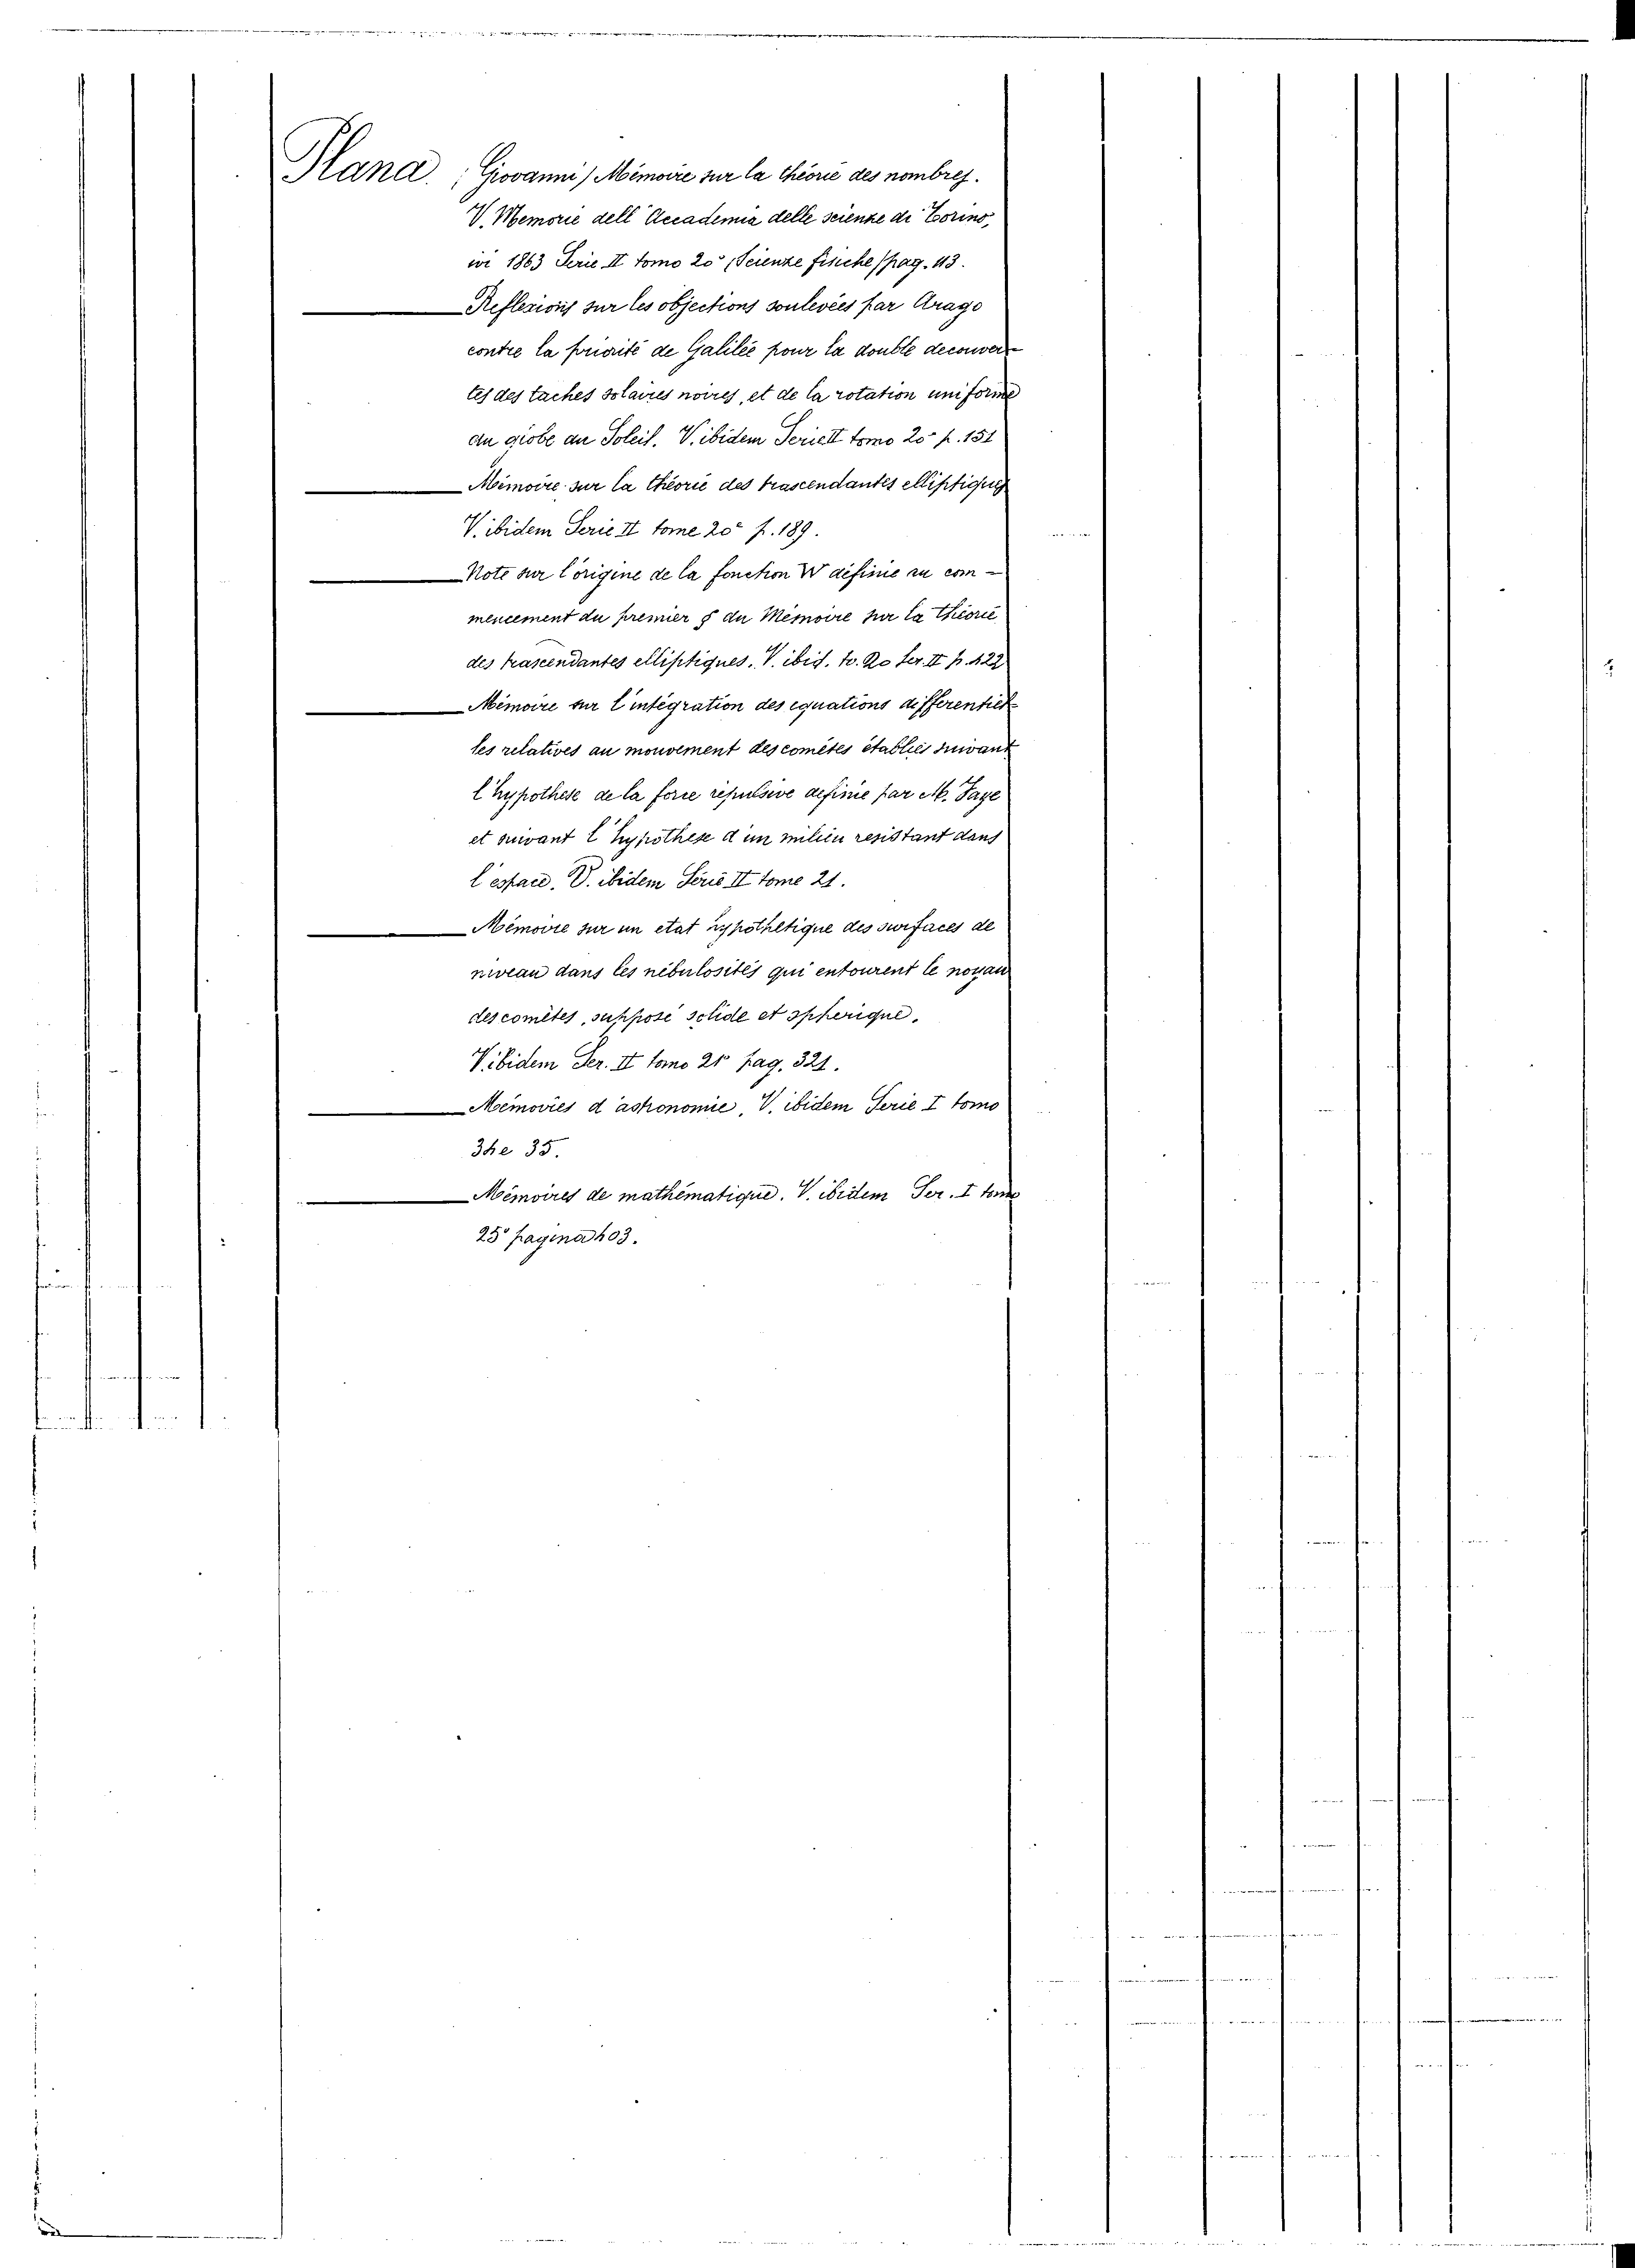 Plana. (Giovanni) Mémoire sur la théorie des nombres.
V. Memorie dell'Accademia delle scienze di Torino,
ivi 1863 Serie II tomo 20° (Scienze fisiche) pag. 113.
Reflexions sur les objections soulevées par Arago
contre la priorité de Galilée pour la double decouver-
tes des taches solaires noires, et de la rotation uniforme
du globe du Soleil. V. ibidem Serie II tomo 20° p. 151
Mémoire sur la théorie des trascendantes elliptiques
V. ibidem Serie II tome 20° p. 189.
Note sur l'origine de la fonction W définie au com-
mencement du premier § du Mémoire sur la théorie
des trascendantes elliptiques. V. ibid. to. 20 ser. II p. 422
Mémoire sur l'intégration des equations differentiel-
les relatives au mouvement des comètes établies suivant
l'hypothese de la force répulsive definie par M. Faye
et suivant l'hypothese d'un milieu resistant dans
l'espace. V. ibidem Série II tome 21.
Mémoire sur un etat hypothetique des surfaces de
niveau dans les nébulosités qui entourent le noyau
des comètes, supposé solide et spherique.
V. ibidem Ser. II tomo 21° pag. 321.
Mémoires d'astronomie, V. ibidem Serie I tomo
34 e 35.
Mémoires de mathématique. V. ibidem Ser. I tomo
25° pagina 403.